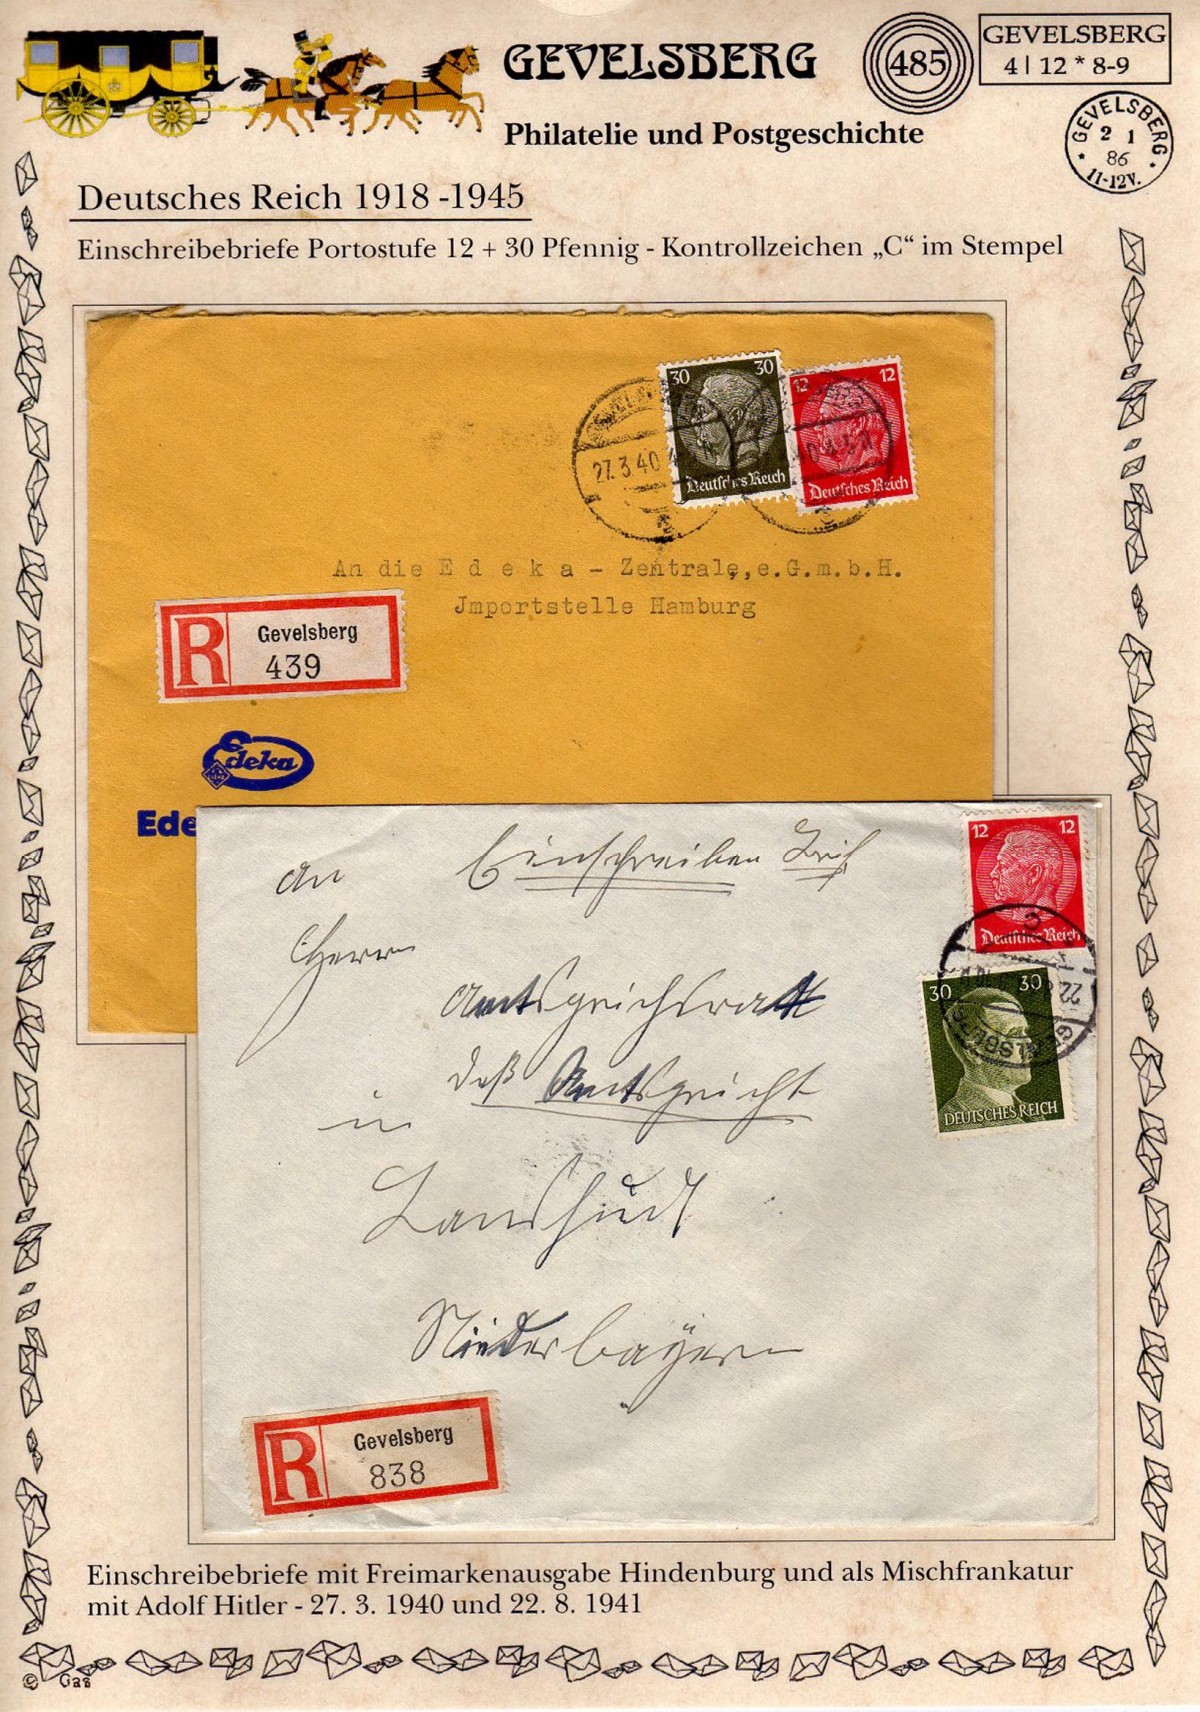 GEVELSBERG
485
GEVELSBERG
4 | 12 * 8-9
Philatelie und Postgeschichte
GEVELSBERG
2 1
86
11-12V.
Deutsches Reich 1918 -1945
Einschreibebriefe Portostufe 12 + 30 Pfennig - Kontrollzeichen „C“ im Stempel
30 30
Deutsches Reich
12 12
Deutsches Reich
27.3.40
c
c
An die E d e k a - Zentrale, e.G.m.b.H.
Jmportstelle Hamburg
R Gevelsberg
439
Edeka
Ede
An Einschreiben
Herrn
Amtsgerichtsrat
in
Landshut
Niederbayern
12 12
Deutsches Reich
30 30
DEUTSCHES REICH
R Gevelsberg
838
Einschreibebriefe mit Freimarkenausgabe Hindenburg und als Mischfrankatur
mit Adolf Hitler - 27. 3. 1940 und 22. 8. 1941
© Gas